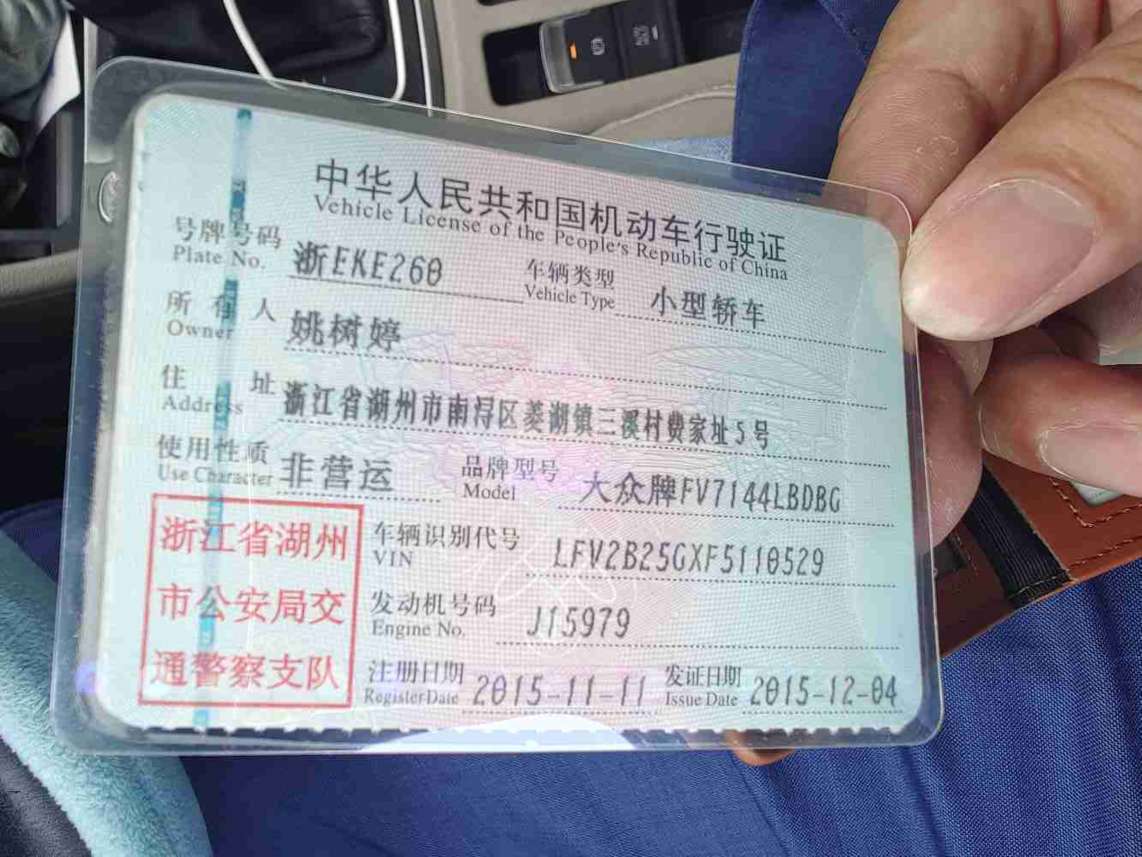 中华人民共和国机动车行驶证
Vehicle License of the People's Republic of China
号牌号码 浙EKE260 车辆类型 小型轿车
Plate No. Vehicle Type
所有人 姚树婷
Owner
住址 浙江省湖州市南浔区菱湖镇三溪村费家址5号
Address
使用性质 非营运 品牌型号 大众牌FV7144LBDBG
Use Character Model
浙江省湖州
市公安局交
通警察支队
车辆识别代号 LFV2B25GXF5110529
VIN
发动机号码 J15979
Engine No.
注册日期 2015-11-11 发证日期 2015-12-04
Register Date Issue Date